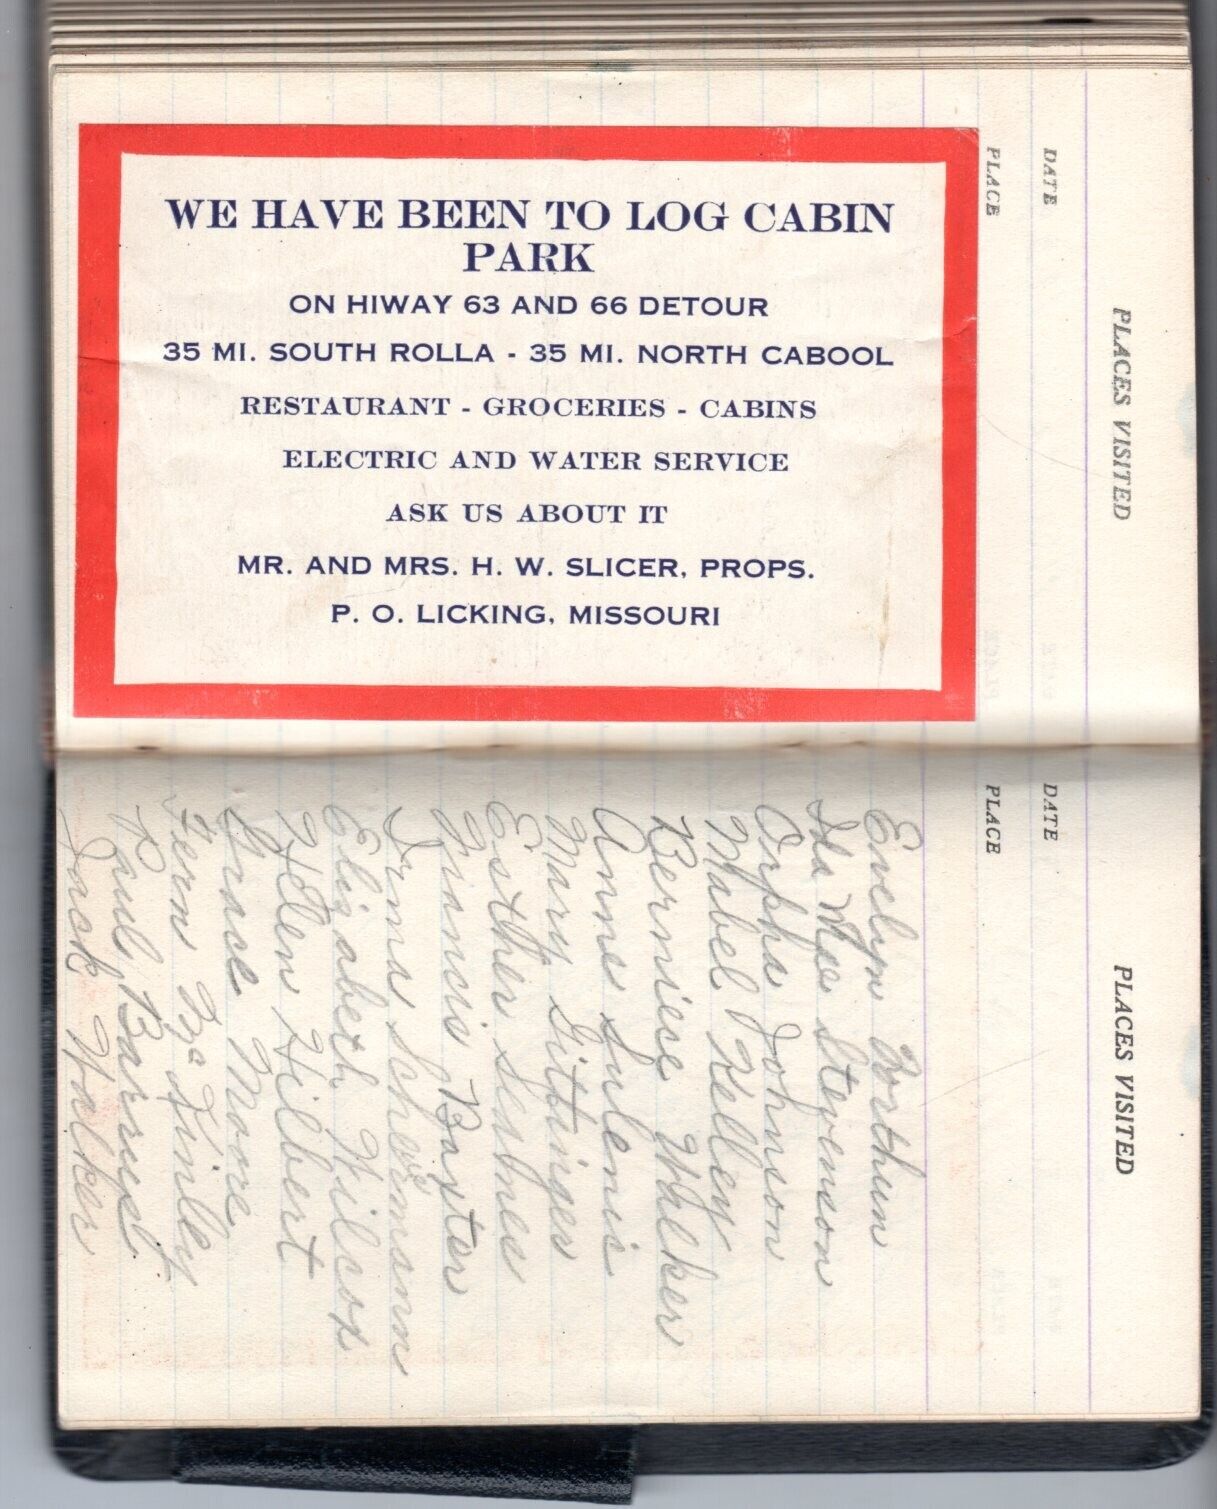 WE HAVE BEEN TO LOG CABIN
PARK
ON HIWAY 63 AND 66 DETOUR
35 MI. SOUTH ROLLA - 35 MI. NORTH CABOOL
RESTAURANT - GROCERIES - CABINS
ELECTRIC AND WATER SERVICE
ASK US ABOUT IT
MR. AND MRS. H. W. SLICER, PROPS.
P. O. LICKING, MISSOURI
PLACES VISITED
DATE
PLACE
PLACES VISITED
DATE
PLACE
Evelyn
Ida Mae Stevenson
Orpha Johnson
Mabel Kelley
Berniece Walker
Anna
Mary Gittinger
Esther
Francis Baxter
Irma
Elisabeth Wilcox
Helen Hilbert
Grace Moore
Fern McKinley
Paul Barnes
Jack Walker